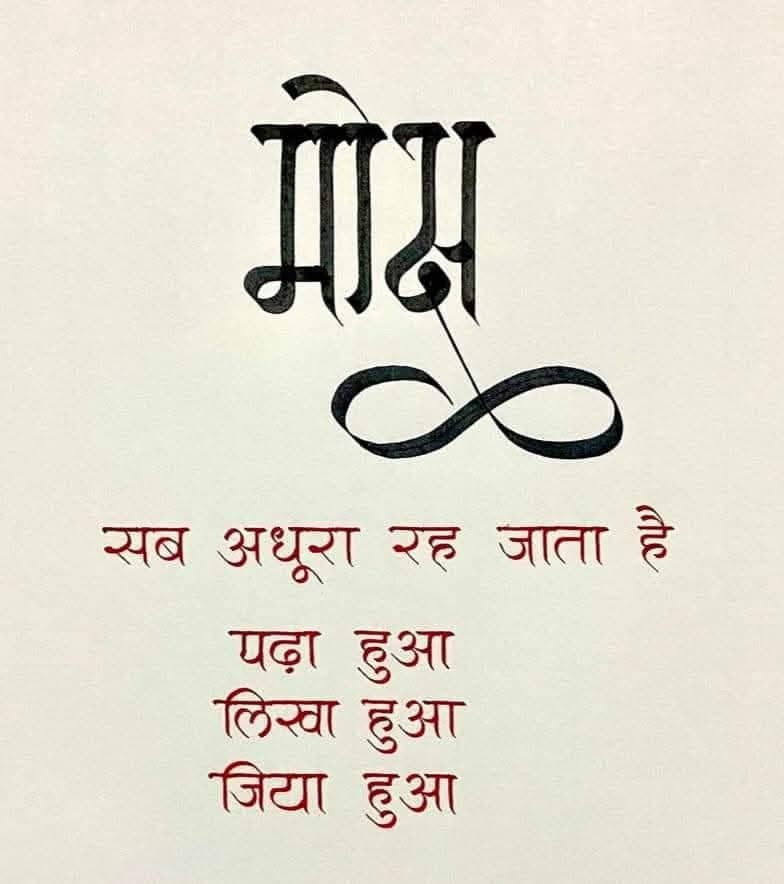 मोक्ष
सब अधूरा रह जाता है
पढ़ा हुआ
लिखा हुआ
जिया हुआ